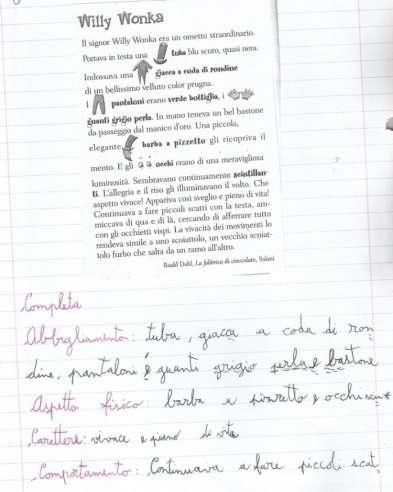 Willy Wonka
Il signor Willy Wonka era un ometto straordinario.
Portava in testa una tuba blu scuro, quasi nera.
Indossava una giacca a coda di rondine
di un bellissimo velluto color prugna.
I pantaloni erano verde bottiglia, i
guanti grigio perla. In mano teneva un bel bastone
da passeggio dal manico d'oro. Una piccola,
elegante barba a pizzetto gli ricopriva il
mento. E gli occhi erano di una meravigliosa
luminosità. Sembravano continuamente scintillan-
ti. L'allegria e il riso gli illuminavano il volto. Che
aspetto vivace! Appariva così sveglio e pieno di vita!
Continuava a fare piccoli scatti con la testa, am-
miccava di qua e di là, cercando di afferrare tutto
con gli occhietti vispi. La vivacità dei movimenti lo
rendeva simile a uno scoiattolo, un vecchio scoiat-
tolo furbo che salta da un ramo all'altro.
Roald Dahl, La fabbrica di cioccolato, Salani
Completa
Abbigliamento: tuba, giacca a coda di ron
dine, pantaloni e guanti grigio perla e bastone
Aspetto fisico: barba a pizzetto e occhi
Carattere: vivace e pieno di vita
Comportamento: Continuava a fare piccoli scat